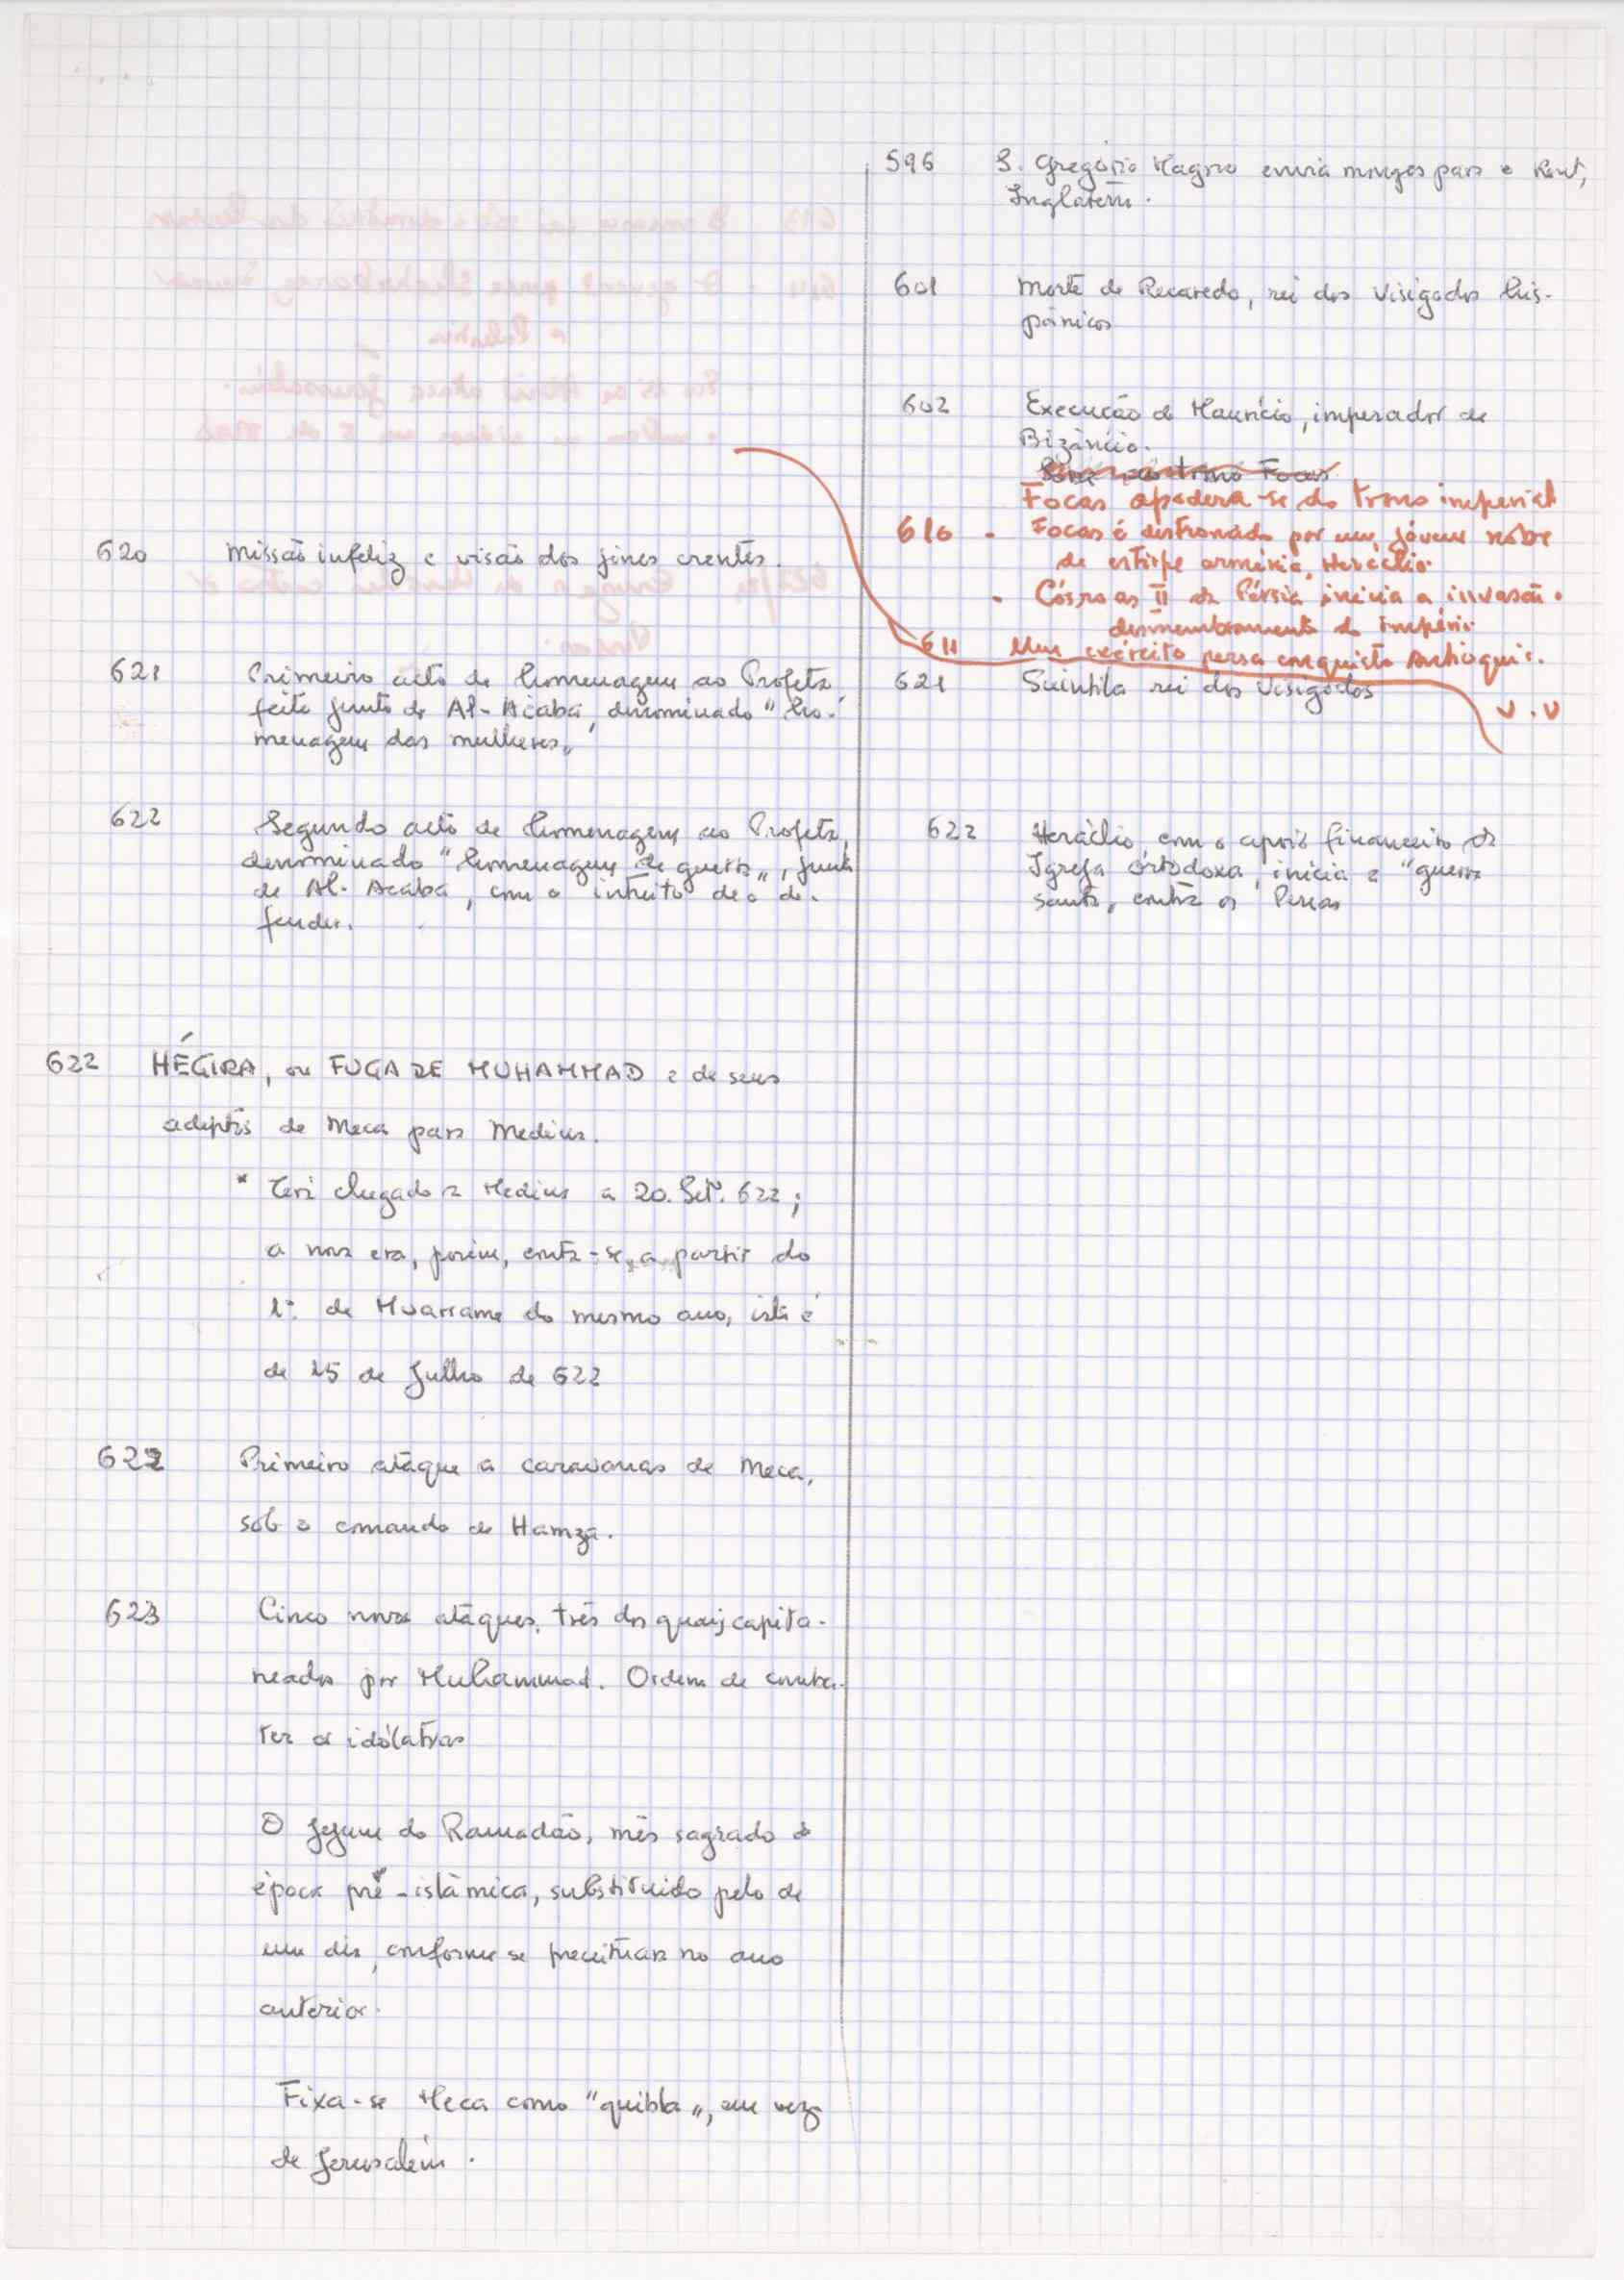 620 Missão infeliz e visão dos jines crentes.
621 Primeiro acto de homenagem ao Profeta,
feito junto de Al-Acabá, denominado "ho-
menagem das mulheres"
622 Segundo acto de homenagem ao Profeta,
denominado "homenagem de guerra", junto
de Al-Acabá, com o intuito de o de-
fender.
622 HÉGIRA, ou FUGA DE MUHAMMAD e de seus
adeptos de Meca para Medina.
* Terá chegado a Medina a 20. Set. 622;
a nova era, porém, conta-se a partir do
1º de Muarrame do mesmo ano, isto é
de 15 de Julho de 622
622 Primeiro ataque a caravanas de Meca,
sob o comando de Hamza.
623 Cinco novos ataques, três dos quais capita-
neados por Muhammad. Ordem de comba-
ter os idólatras
O jejum do Ramadão, mês sagrado da
época pré-islâmica, substituido pelo de
um dia, conforme se preceituara no ano
anterior.
Fixa-se Meca como "quibla", em vez
de Jerusalém.
596 S. Gregório Magno envia monges para o Kent,
Inglaterra.
601 Morte de Recaredo, rei dos Visigodos his-
pânicos
602 Execução de Maurício, imperador de
Bizâncio.
Sobe ao trono Focas
Focas apodera-se do trono imperial
610 - Focas é destronado por um jóvem nobre
de estirpe arménia, Heráclio.
- Cósroas II da Pérsia inicia a invasão.
desmembramento do Império
611 Um exército persa conquista Antioquia.
621 Suintila rei dos Visigodos
V.V
622 Heráclio, com o apoio financeiro da
Igreja Ortodoxa, inicia a "guerra
santa" contra os Persas